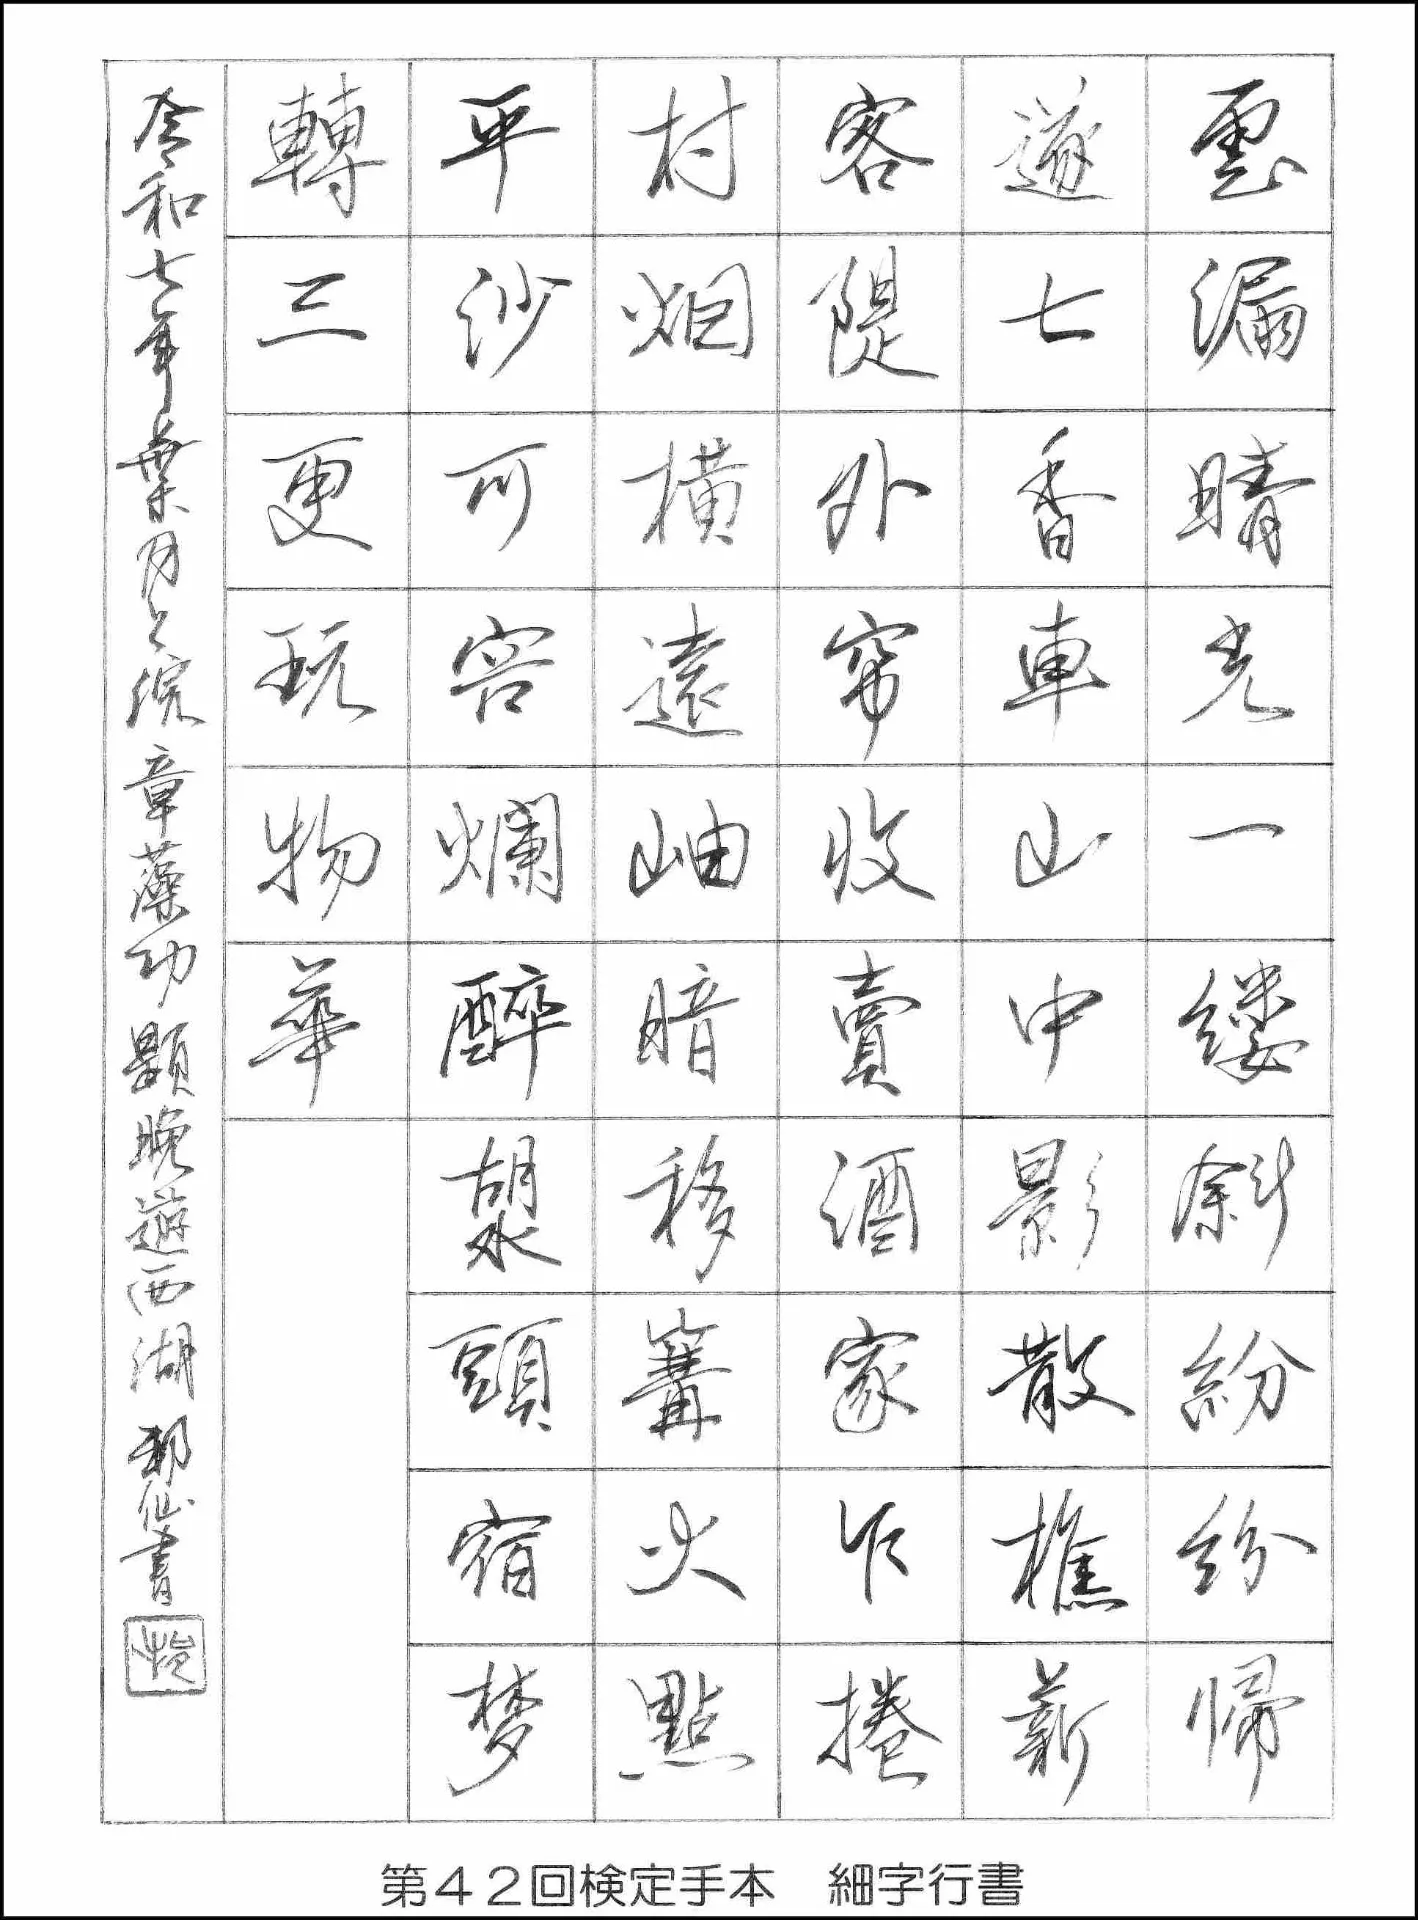 雲漏晴光一縷斜紛紛帰
遂七香車山中影散樵薪
客隄外帘收賣酒家乍捲
村烟橫遠岫暗移篝火點
平沙可容爛醉湖頭宿梦
轉三更玩物華
令和七年葉月上浣 章藻功 題晩遊西湖 邨仙書
第42回検定手本　細字行書